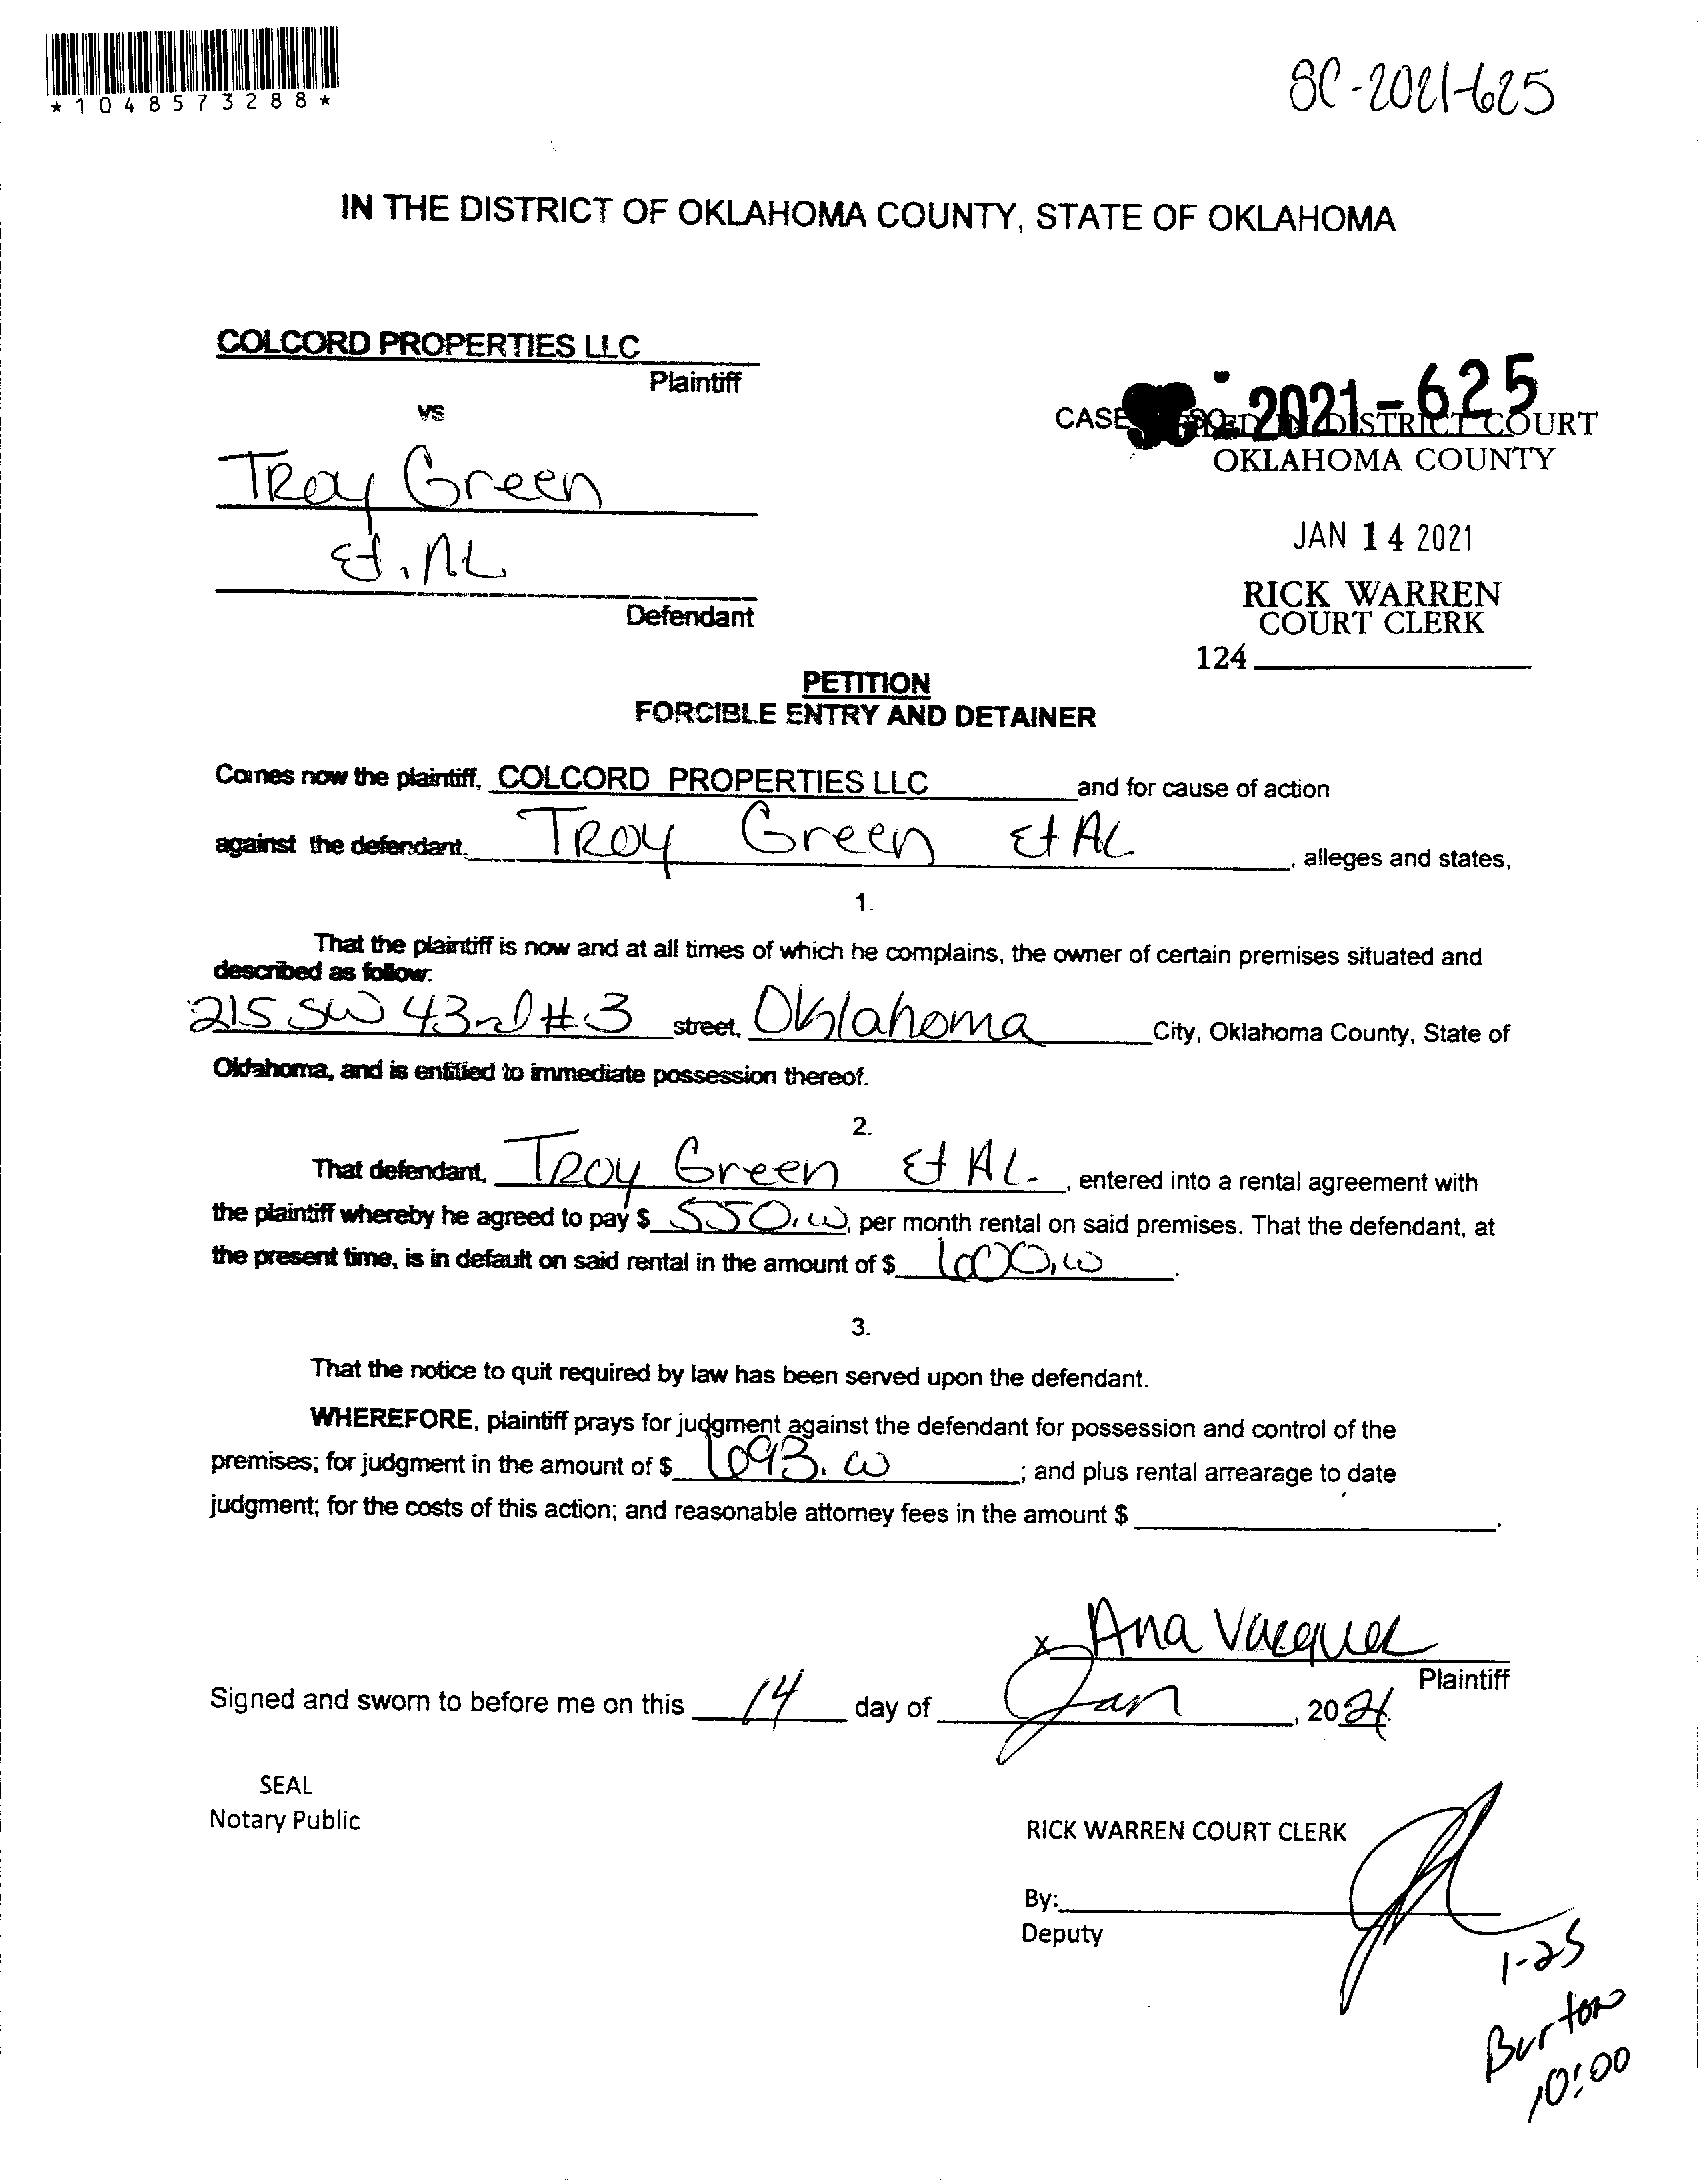 *1048573288*
SC-2021-625
IN THE DISTRICT OF OKLAHOMA COUNTY, STATE OF OKLAHOMA
COLCORD PROPERTIES LLC
Plaintiff
vs
CASE SC-2021-625
FILED IN DISTRICT COURT
OKLAHOMA COUNTY
Troy Green
Et. AL
Defendant
JAN 14 2021
RICK WARREN
COURT CLERK
124
PETITION
FORCIBLE ENTRY AND DETAINER
Comes now the plaintiff, COLCORD PROPERTIES LLC and for cause of action
against the defendant. Troy Green Et AL, alleges and states,
1.
That the plaintiff is now and at all times of which he complains, the owner of certain premises situated and
described as follow:
215 SW 43rd #3 street, Oklahoma City, Oklahoma County, State of
Oklahoma, and is entitled to immediate possession thereof.
2.
That defendant, Troy Green Et AL., entered into a rental agreement with
the plaintiff whereby he agreed to pay $ 550.00, per month rental on said premises. That the defendant, at
the present time, is in default on said rental in the amount of $ .
3.
That the notice to quit required by law has been served upon the defendant.
WHEREFORE, plaintiff prays for judgment against the defendant for possession and control of the
premises; for judgment in the amount of $ ; and plus rental arrearage to date
judgment; for the costs of this action; and reasonable attorney fees in the amount $ .
x Ana Vazquez
Plaintiff
Signed and sworn to before me on this 14 day of Jan, 2021.
SEAL
Notary Public
RICK WARREN COURT CLERK
By:
Deputy
1-25
Burton
10:00